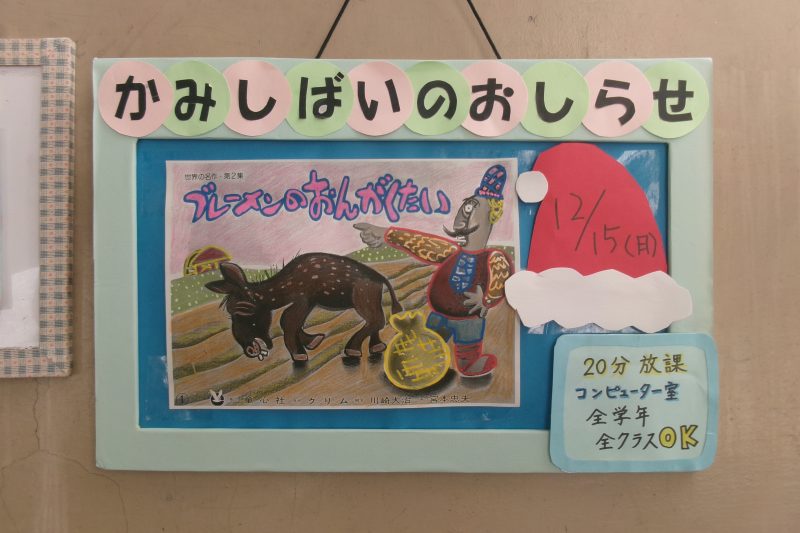 かみしばいのおしらせ
世界の名作・第2集
ブレーメンのおんがくたい
12/15(月)
童心社
グリム
川崎大治
宮本忠夫
20分 放課
コンピューター室
全学年
全クラスOK